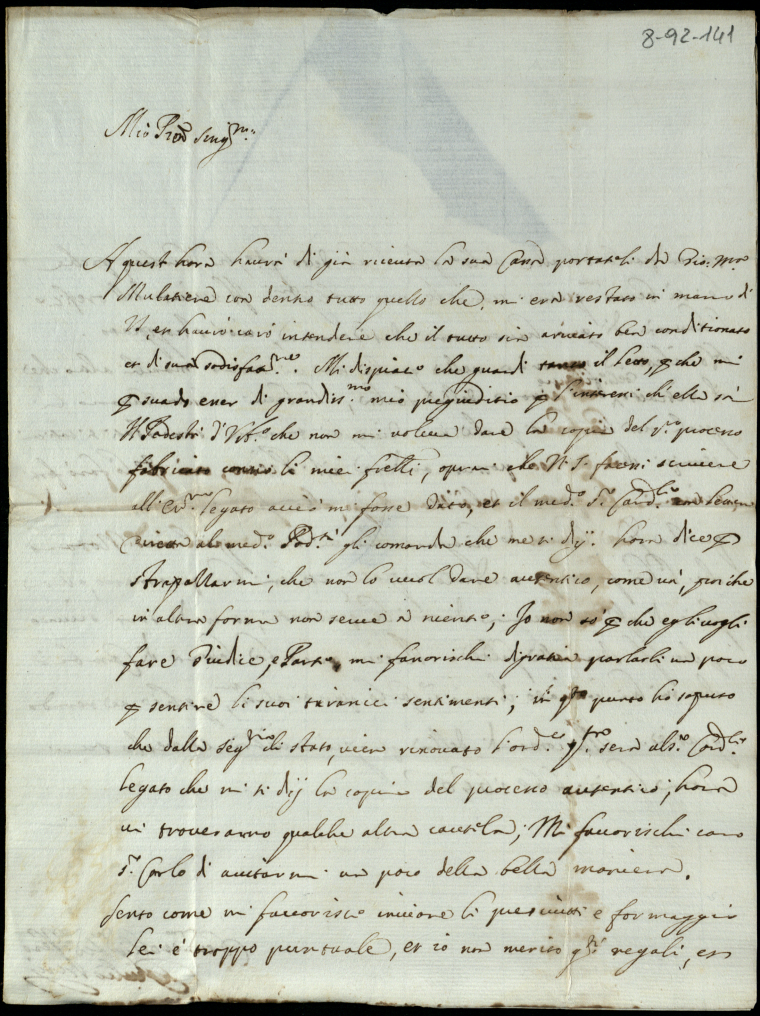 8-92-141
Mio Pro͞n Sing.re
A quest hora haurà di già riceuta la sua Cassa portatali da Gio: Ma
Mulatiere con dentro tutto quello che mi era restato in mano di
et hauerò caro intendere che il tutto sia arriuato ben conditionato
et di sua sodisfat.ne. Mi dispiace che guardi il letto, che mi
ꝑsuado esser di grandiss.mo mio pregiuditio ꝑ l'interessi ch'ella sà
Il Podestà d'Vrb.o che non mi voleua dare la copia del processo
fabricato contro li miei fratelli, oprai che N. S. facessi scriuere
all' legato acciò mi fosse dato, et il med.o S.r Card.le con lettera
al med.o Pod.stà gli comanda che me ti dij. hora dice ꝑ
strapallarmi, che non lo vuol dare autentico, come và, perche
in altra forma non serue à niente; Io non sò ꝑ che egli vogli
fare Giudice, e Parte, mi fauorischi di gratia parlarli un poco
ꝑ sentire li suoi tiranici sentimenti; in q.to punto hò saputo
che dalla Seg.ria di stato, vien rinouato l'ord.e sera al S.r Card.le
legato che mi ti dij la copia del processo autentico; hora
vi troueranno qualche altra cautela; Mi fauorischi caro
S.r Carlo di aiutarmi un poco della bella maniera.
Sento come mi fauorisce inuiare li presciutti e formaggii
lei è troppo puntuale, et io non merito q.sti regali, et